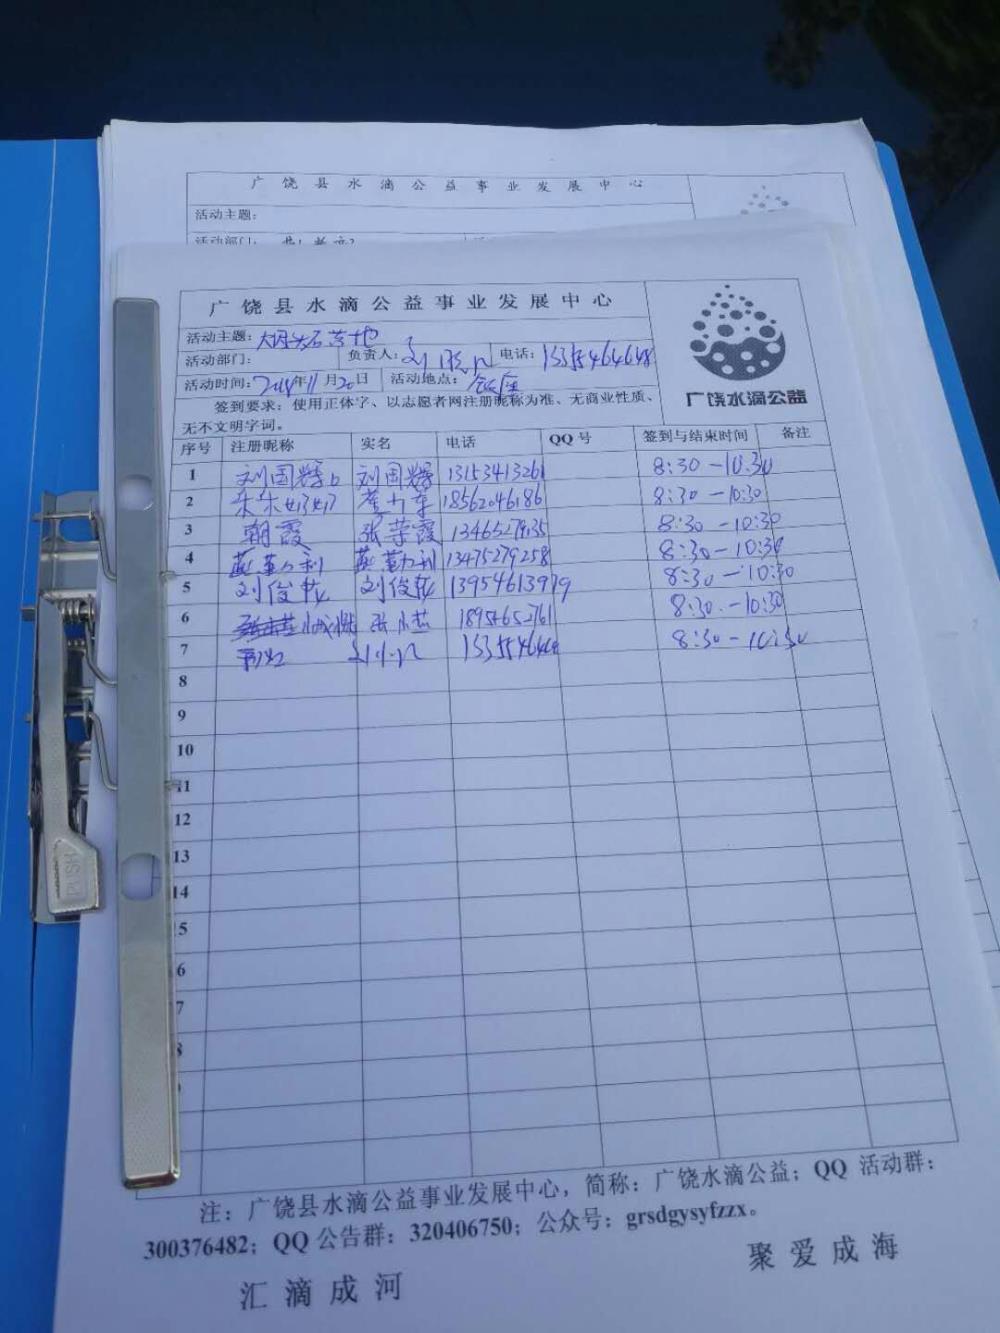 广饶县水滴公益事业发展中心
活动主题:
活动部门:
广饶县水滴公益事业发展中心
活动主题:
活动部门: 负责人: 刘 电话: 13355464648
活动时间: 年11月20日 活动地点:
签到要求: 使用正体字、以志愿者网注册昵称为准、无商业性质、
无不文明字词。
广饶水滴公益
序号 注册昵称 实名 电话 QQ号 签到与结束时间 备注
1 刘国辉 刘国辉 13153413261 8:30-10:30
2 朵朵 18562046186 8:30-10:30
3 朝霞 张荣霞 8:30-10:30
4 13475279258 8:30-10:30
5 刘俊 刘俊 13954613979 8:30-10:30
6 张 18954652761 8:30-10:30
7 刘 8:30-10:30
8
9
10
11
12
13
14
5
6
7
8
PUSH
注: 广饶县水滴公益事业发展中心, 简称: 广饶水滴公益; QQ 活动群:
300376482; QQ 公告群: 320406750; 公众号: grsdgysyfzzx。
汇滴成河 聚爱成海